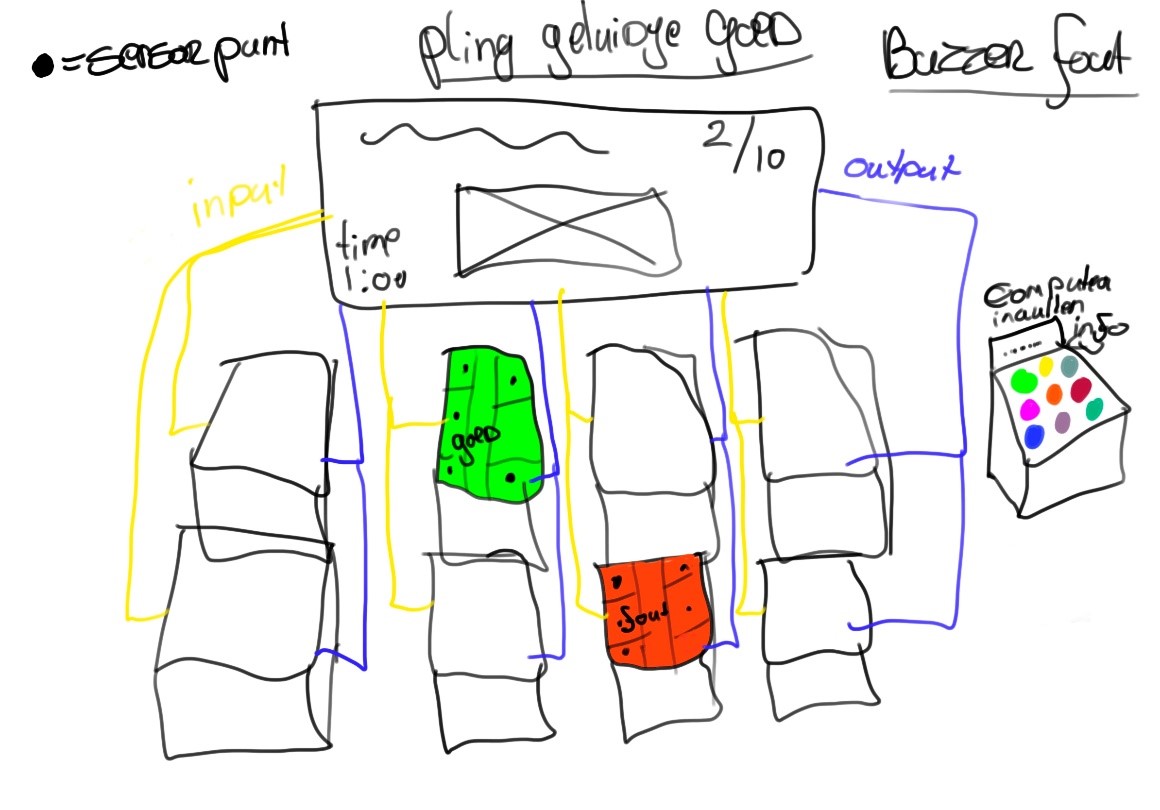 ● = sensor punt
pling geluidje GOED
Buzzer fout
2/10
input
output
time
1:00
Computer
invullen
info
goed
fout